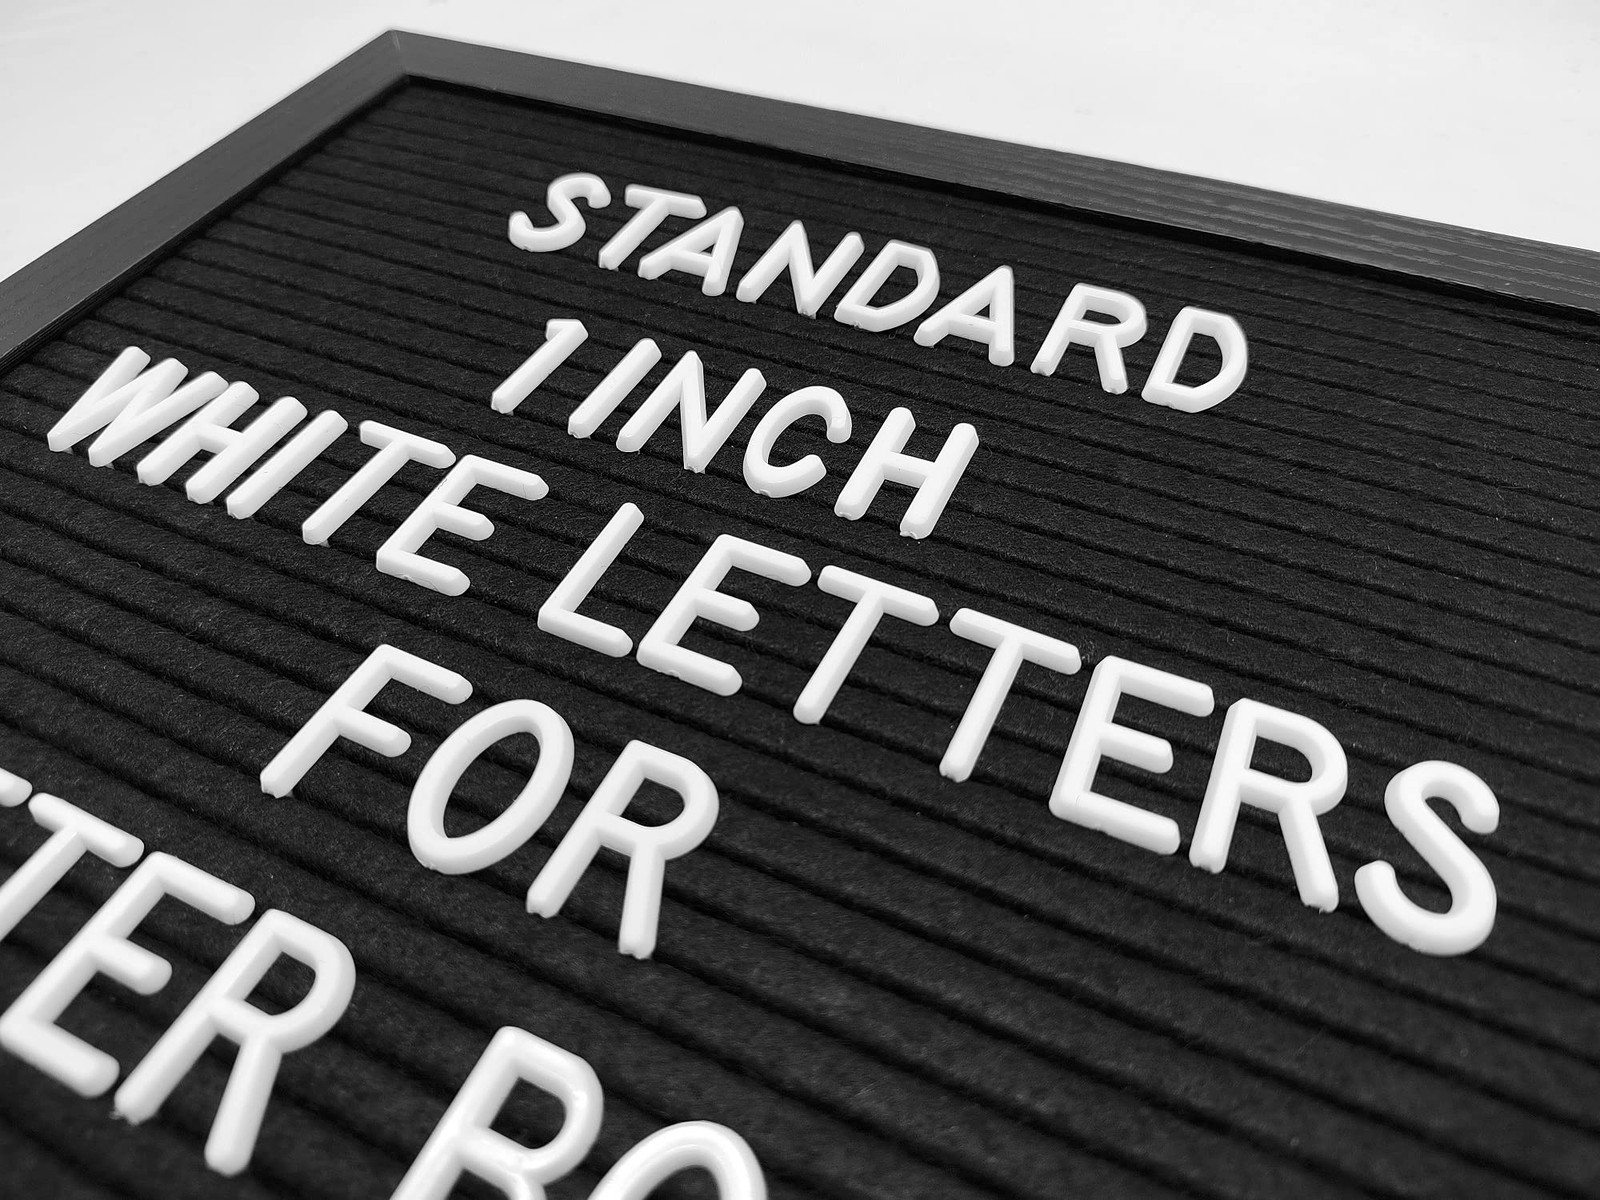 STANDARD
1 INCH
WHITE LETTERS
FOR
TTER BO